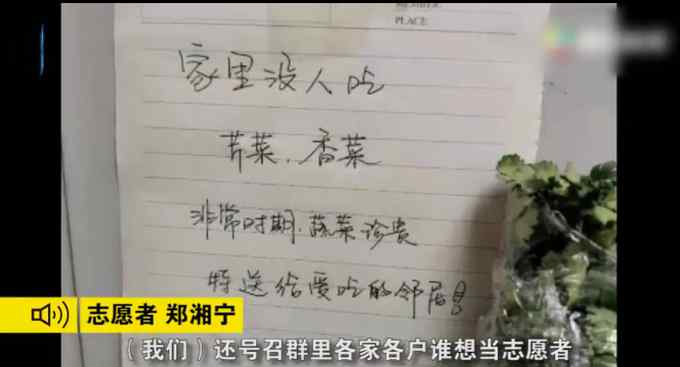 PLACE
家里没人吃
芹菜、香菜
非常时期、蔬菜珍贵
特送给爱吃的邻居!
志愿者 郑湘宁
（我们）还号召群里各家各户谁想当志愿者